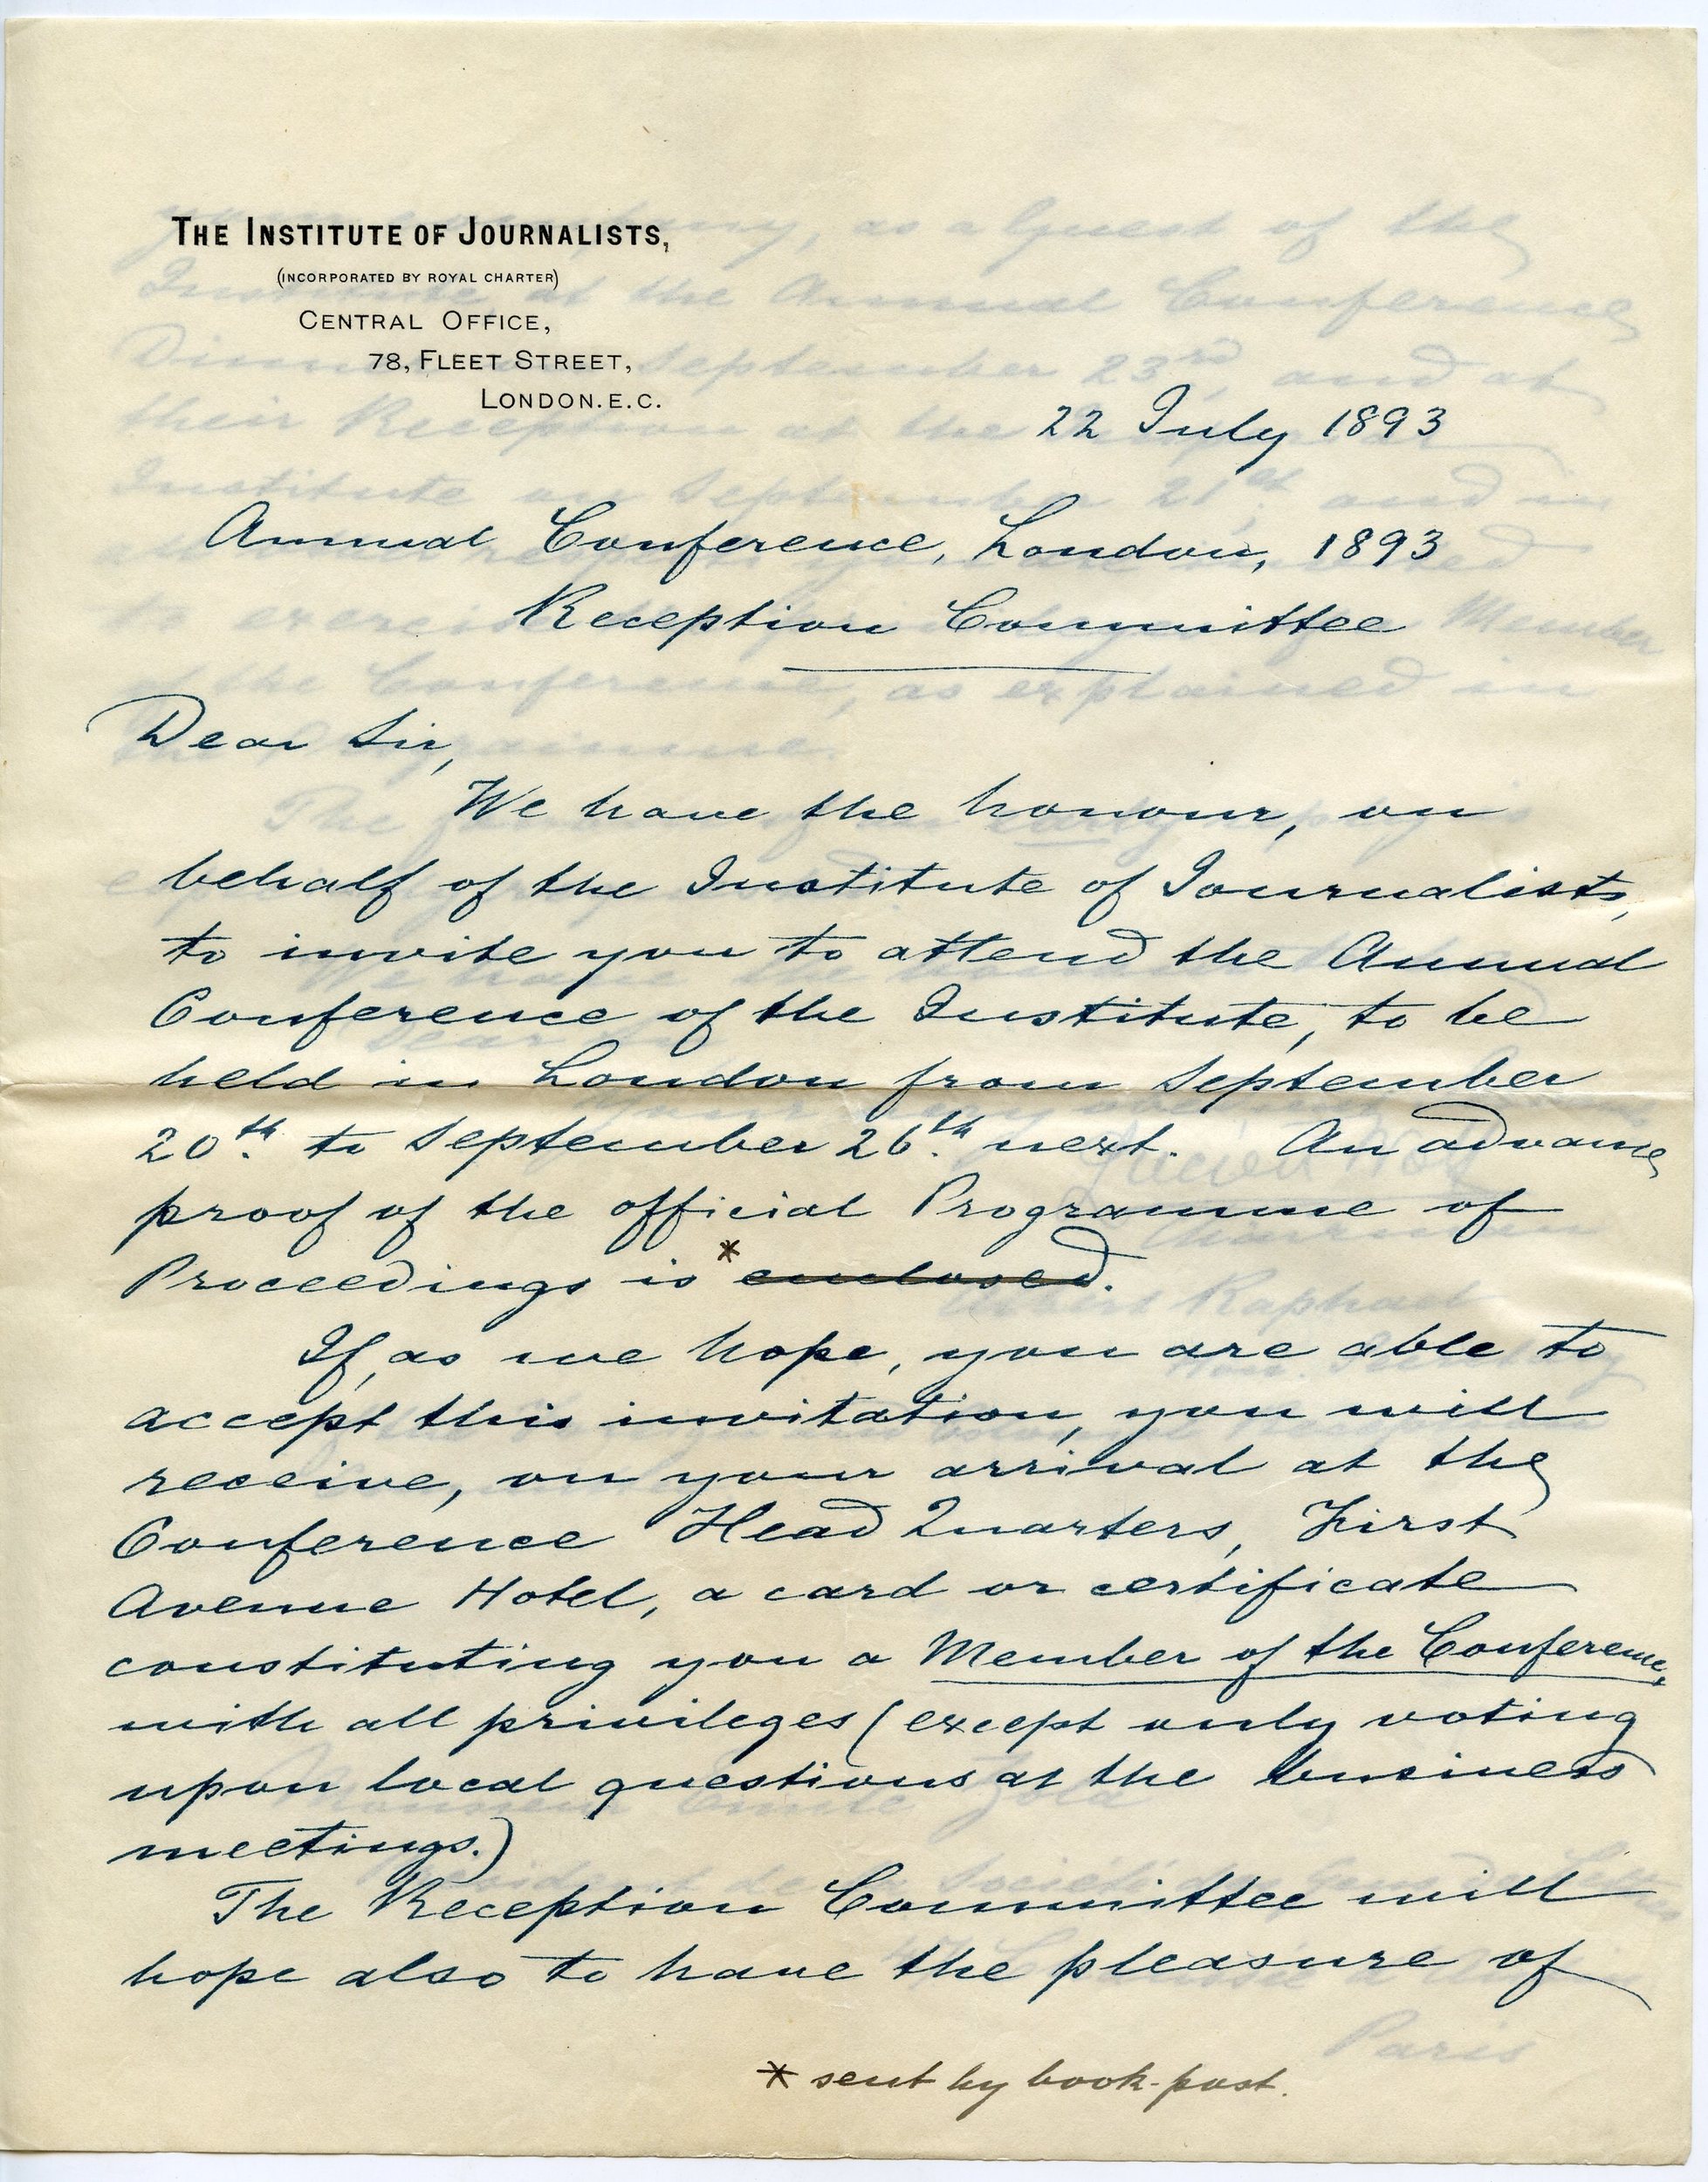 THE INSTITUTE OF JOURNALISTS,
(INCORPORATED BY ROYAL CHARTER)
CENTRAL OFFICE,
78, FLEET STREET,
LONDON. E. C.
22 July 1893
Annual Conference, London, 1893
Reception Committee
Dear Sir,
We have the honour, on
behalf of the Institute of Journalists,
to invite you to attend the Annual
Conference of the Institute, to be
held in London from September
20th. to September 26th. next. An advance
proof of the official Programme of
Proceedings is * enclosed.
If, as we hope, you are able to
accept this invitation, you will
receive, on your arrival at the
Conference Head Quarters, First
Avenue Hotel, a card or certificate
constituting you a Member of the Conference,
with all privileges (except only voting
upon local questions at the business
meetings.)
The Reception Committee will
hope also to have the pleasure of
* sent by book-post.